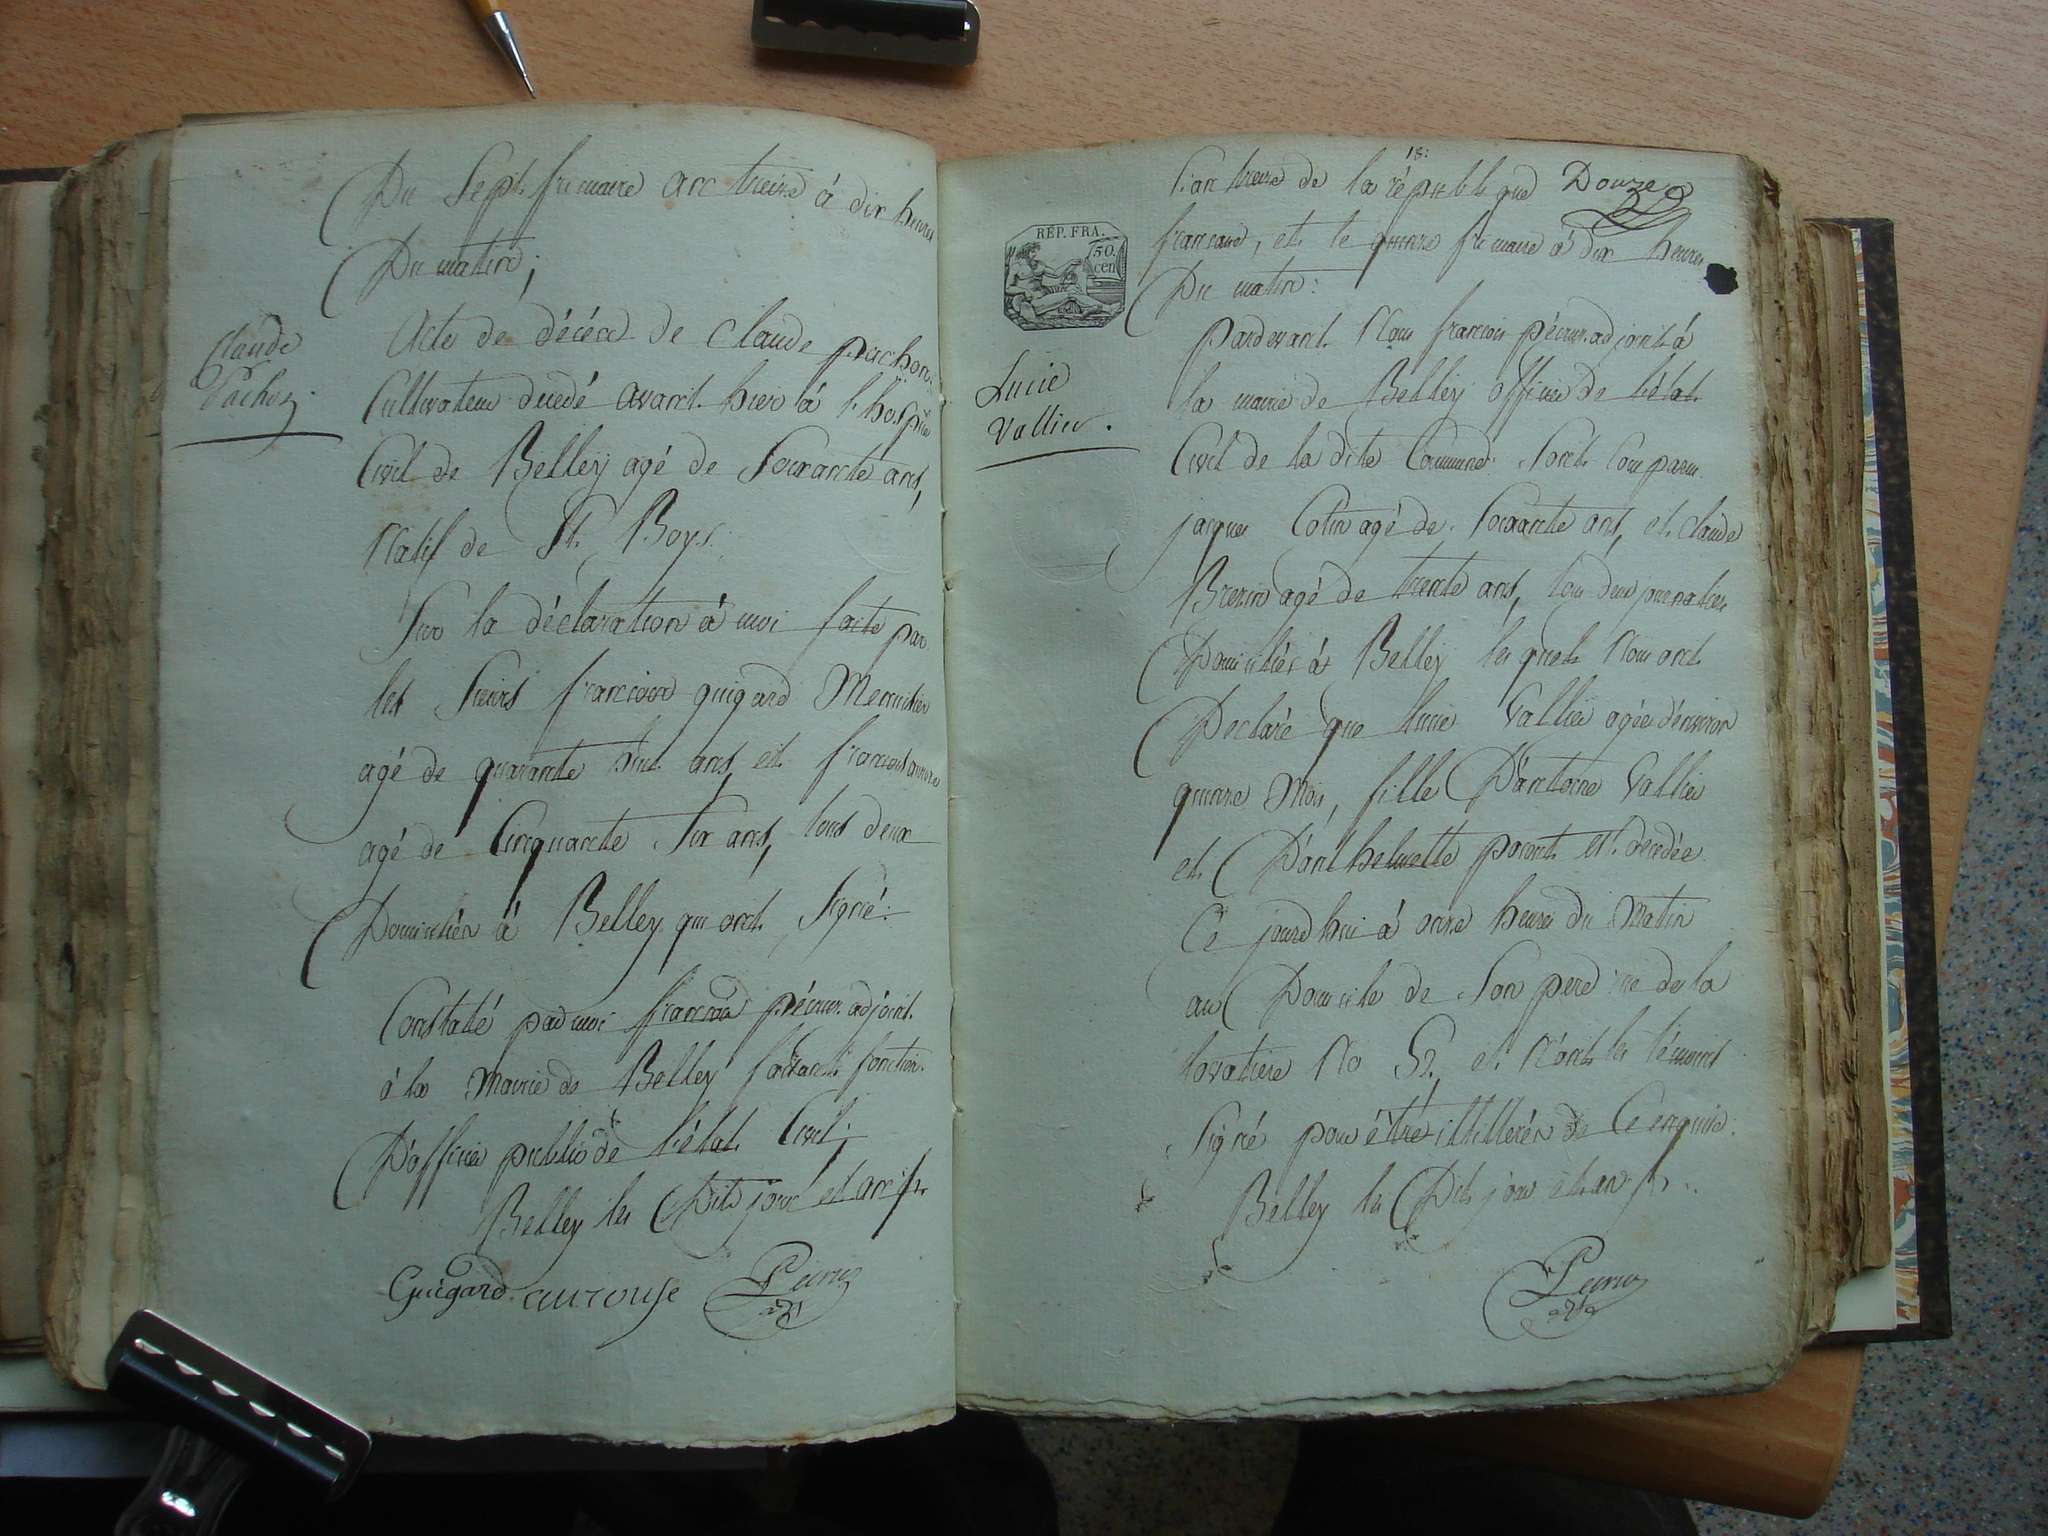 Du Sept frimaire an treize à dix heures
Du matin;
Claude
Pachoz.
Acte de décès de Claude pachon
Cultivateur décédé avant hier à l'hospice
Civil de Belley agé de Soixante ans,
Natif de St. Boys.
Sur la déclaration à moi faite par
les Sieurs françois guigard Menuisier
agé de quarante huit ans, et françois aurouse
agé de Cinquante Six ans, tous deux
Domiciliés à Belley qui ont Signé.
Constaté par moi françois pécour adjoint
à la Mairie de Belley faisant fonction
D'officier public de l'état Civil;
Belley les Dits jour et an
Guigard aurouse
18.
L'an treize de la république Douze
française, et le quinze frimaire à dix heures
Du matin:
RÉP. FRA.
50.
cen
Lucie
Vallier.
pardevant Nous françois pécour adjoint à
la mairie de Belley officier de l'état
Civil de la dite Commune Sont Comparu
jacques Colin agé de Soixante ans, et claude
agé de trente ans, tous deux journaliers
Domiciliés à Belley les quels Nous ont
Declaré que lucie Vallier agée d'environ
quinze Mois, fille D'antoine Vallier
et D'anthelmette est décédée
Ce jourd'hui à onze heures du Matin
au Domicile de Son pere rue de la
lavatiere No 52, et N'ont les témoins
Signé pour être illitterés de Ce enquis.
Belley les Dits jour et an